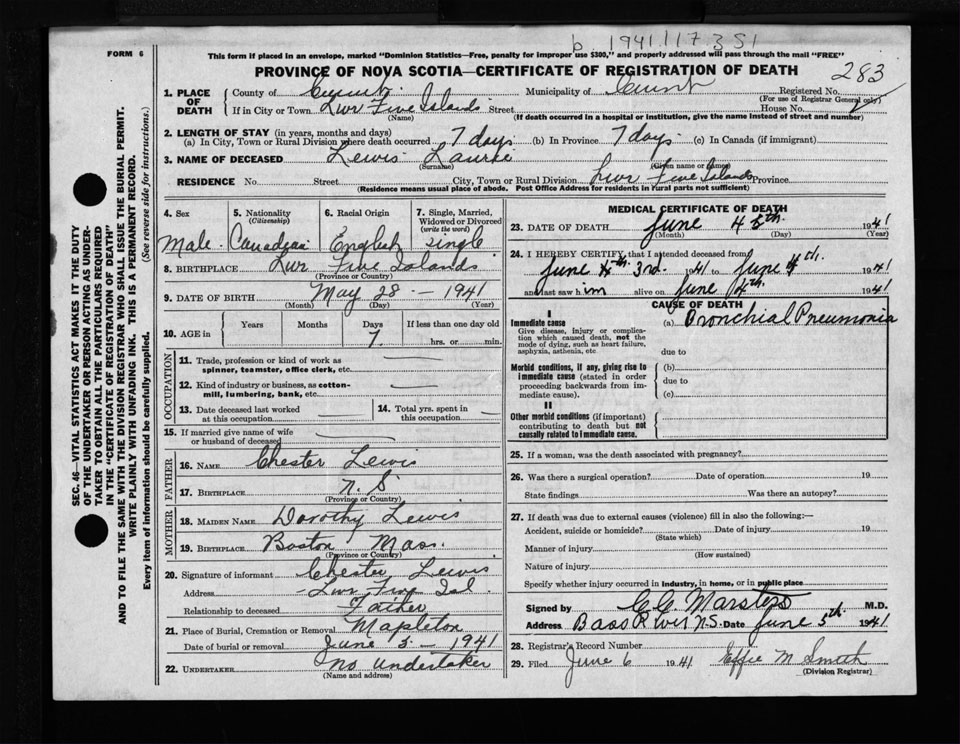 FORM 6
b 1941 117 351
This form if placed in an envelope, marked "Dominion Statistics—Free, penalty for improper use $300," and properly addressed will pass through the mail "FREE"
PROVINCE OF NOVA SCOTIA—CERTIFICATE OF REGISTRATION OF DEATH
283
1. PLACE OF DEATH County of Municipality of Registered No.
(For use of Registrar General only)
If in City or Town Lwr Five Islands Street House No.
(Name) (If death occurred in a hospital or institution, give the name instead of street and number)
2. LENGTH OF STAY (in years, months and days)
(a) In City, Town or Rural Division where death occurred 7 days (b) In Province 7 days (c) In Canada (if immigrant)
3. NAME OF DECEASED Lewis Laurie
(Surname) (Given name or names)
RESIDENCE No. Street City, Town or Rural Division Lwr Five Islands Province
(Residence means usual place of abode. Post Office Address for residents in rural parts not sufficient)
4. Sex 5. Nationality (Citizenship) 6. Racial Origin 7. Single, Married, Widowed or Divorced (write the word)
Male Canadian English single
8. BIRTHPLACE Lwr Five Islands
(Province or Country)
9. DATE OF BIRTH May 28 — 1941
(Month) (Day) (Year)
10. AGE in Years Months Days If less than one day old
7 hrs. or min.
OCCUPATION
11. Trade, profession or kind of work as spinner, teamster, office clerk, etc.
12. Kind of industry or business, as cotton-mill, lumbering, bank, etc.
13. Date deceased last worked at this occupation 14. Total yrs. spent in this occupation
15. If married give name of wife or husband of deceased
FATHER
16. NAME Chester Lewis
17. BIRTHPLACE N. S
(Province or Country)
MOTHER
18. MAIDEN NAME Dorothy Lewis
19. BIRTHPLACE Boston Mass.
(Province or Country)
20. Signature of informant Chester Lewis
Address Lwr Five Isl.
Relationship to deceased Father
21. Place of Burial, Cremation or Removal Mapleton
Date of burial or removal June 5 — 1941
22. UNDERTAKER no undertaker
(Name and address)
MEDICAL CERTIFICATE OF DEATH
23. DATE OF DEATH June 4 5th. 1941
(Month) (Day) (Year)
24. I HEREBY CERTIFY, that I attended deceased from
June 4th. 3rd. 1941 to June 4th. 1941
and last saw him alive on June 4th. 1941
CAUSE OF DEATH
I
Immediate cause (a) Bronchial Pneumonia
Give disease, injury or complication which caused death, not the mode of dying, such as heart failure, asphyxia, asthenia, etc
due to
Morbid conditions, if any, giving rise to immediate cause (stated in order proceeding backwards from immediate cause).
(b)
due to
(c)
II
Other morbid conditions (if important) contributing to death but not causally related to immediate cause.
25. If a woman, was the death associated with pregnancy?
26. Was there a surgical operation? Date of operation 19
State findings Was there an autopsy?
27. If death was due to external causes (violence) fill in also the following:—
Accident, suicide or homicide? Date of injury 19
(State which)
Manner of injury
(How sustained)
Nature of injury
Specify whether injury occurred in industry, in home, or in public place
Signed by C.C. Marsters M.D.
Address Bass River N.S. Date June 5th 1941
28. Registrar's Record Number
29. Filed June 6 1941 Effie M Smith
(Division Registrar)
SEC. 46—VITAL STATISTICS ACT MAKES IT THE DUTY
OF THE UNDERTAKER OR PERSON ACTING AS UNDER-
TAKER TO OBTAIN ALL THE PARTICULARS REQUIRED
IN THE "CERTIFICATE OF REGISTRATION OF DEATH"
AND TO FILE THE SAME WITH THE DIVISION REGISTRAR WHO SHALL ISSUE THE BURIAL PERMIT.
WRITE PLAINLY WITH UNFADING INK. THIS IS A PERMANENT RECORD.
Every item of information should be carefully supplied. (See reverse side for instructions.)